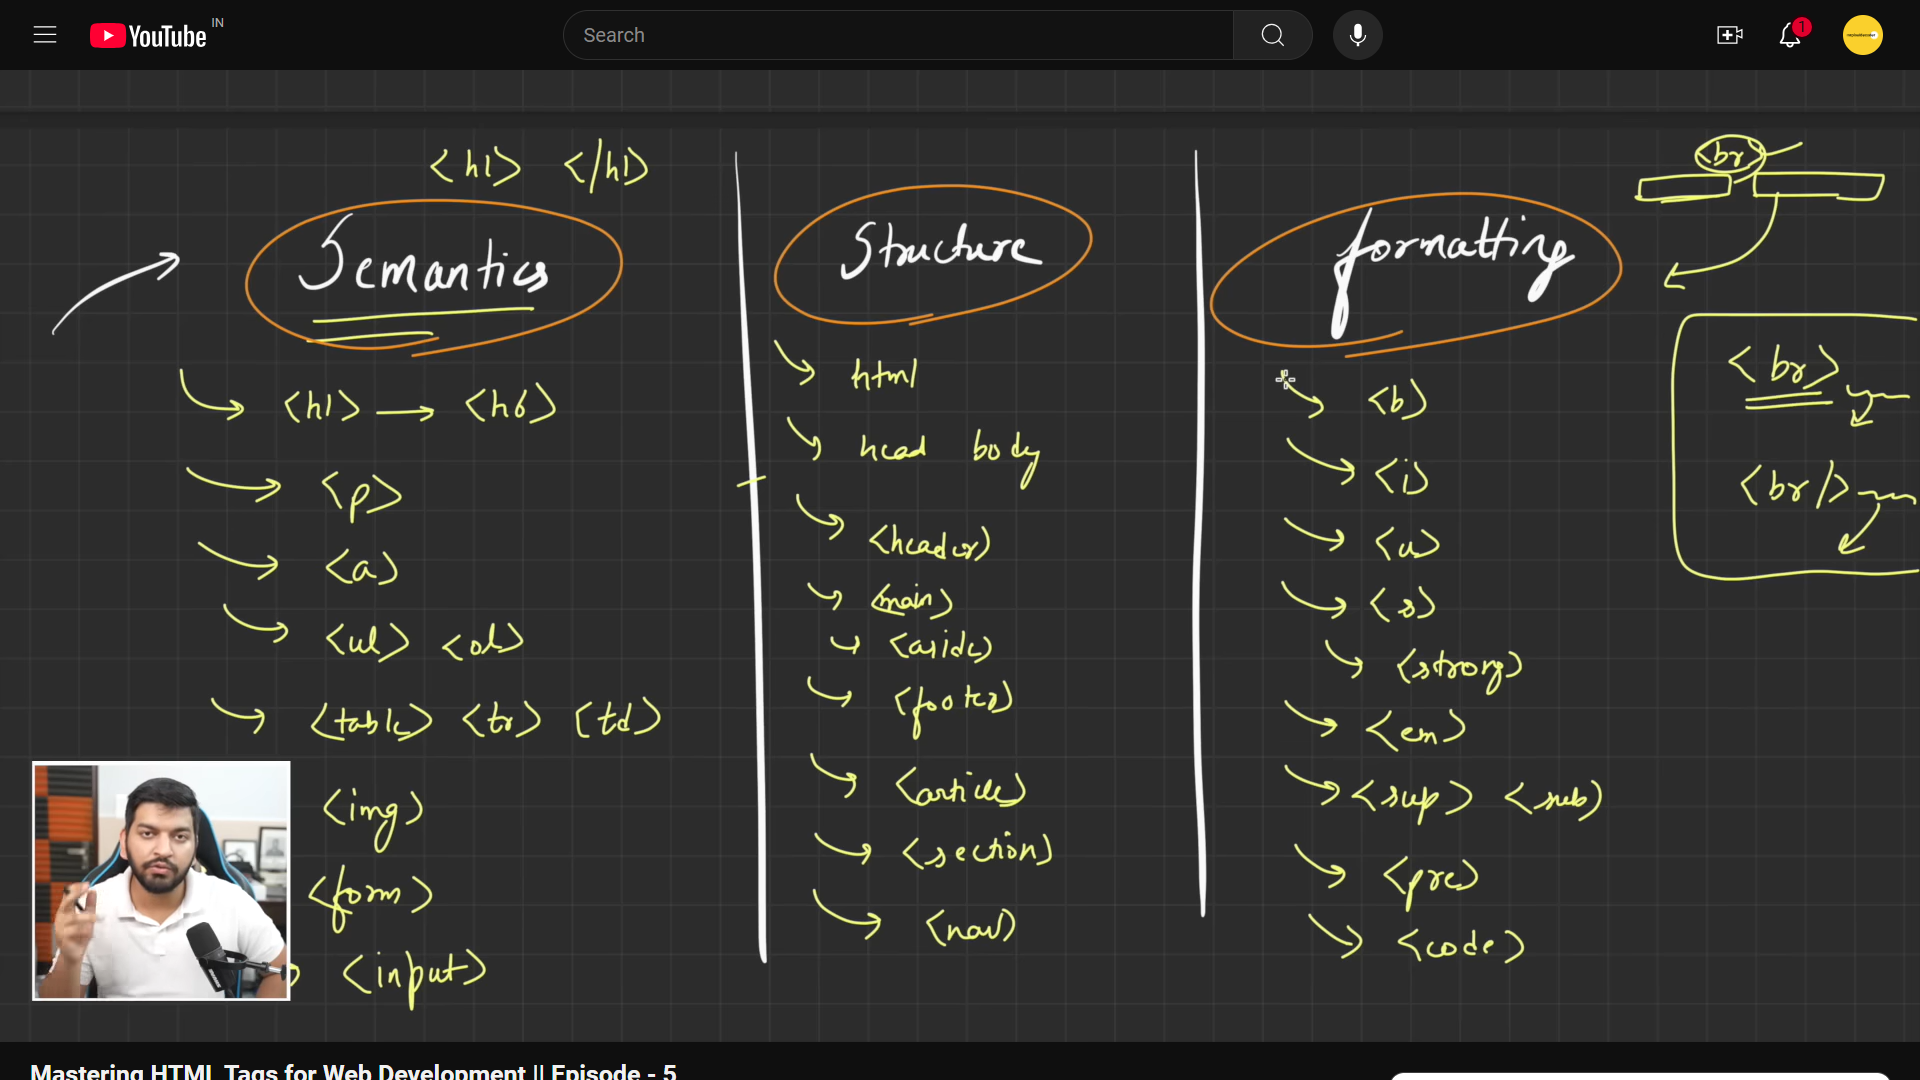 YouTube IN
Search
1
<h1> </h1>
Semantics
<h1> → <h6>
<p>
<a>
<ul> <ol>
<table> <tr> <td>
<img>
<form>
<input>
Structure
html
head body
<header>
<main>
<aside>
<footer>
<article>
<section>
<nav>
formatting
<b>
<i>
<u>
<s>
<strong>
<em>
<sup> <sub>
<pre>
<code>
<br>
<br>
<br/>
Mastering HTML Tags for Web Development || Episode - 5